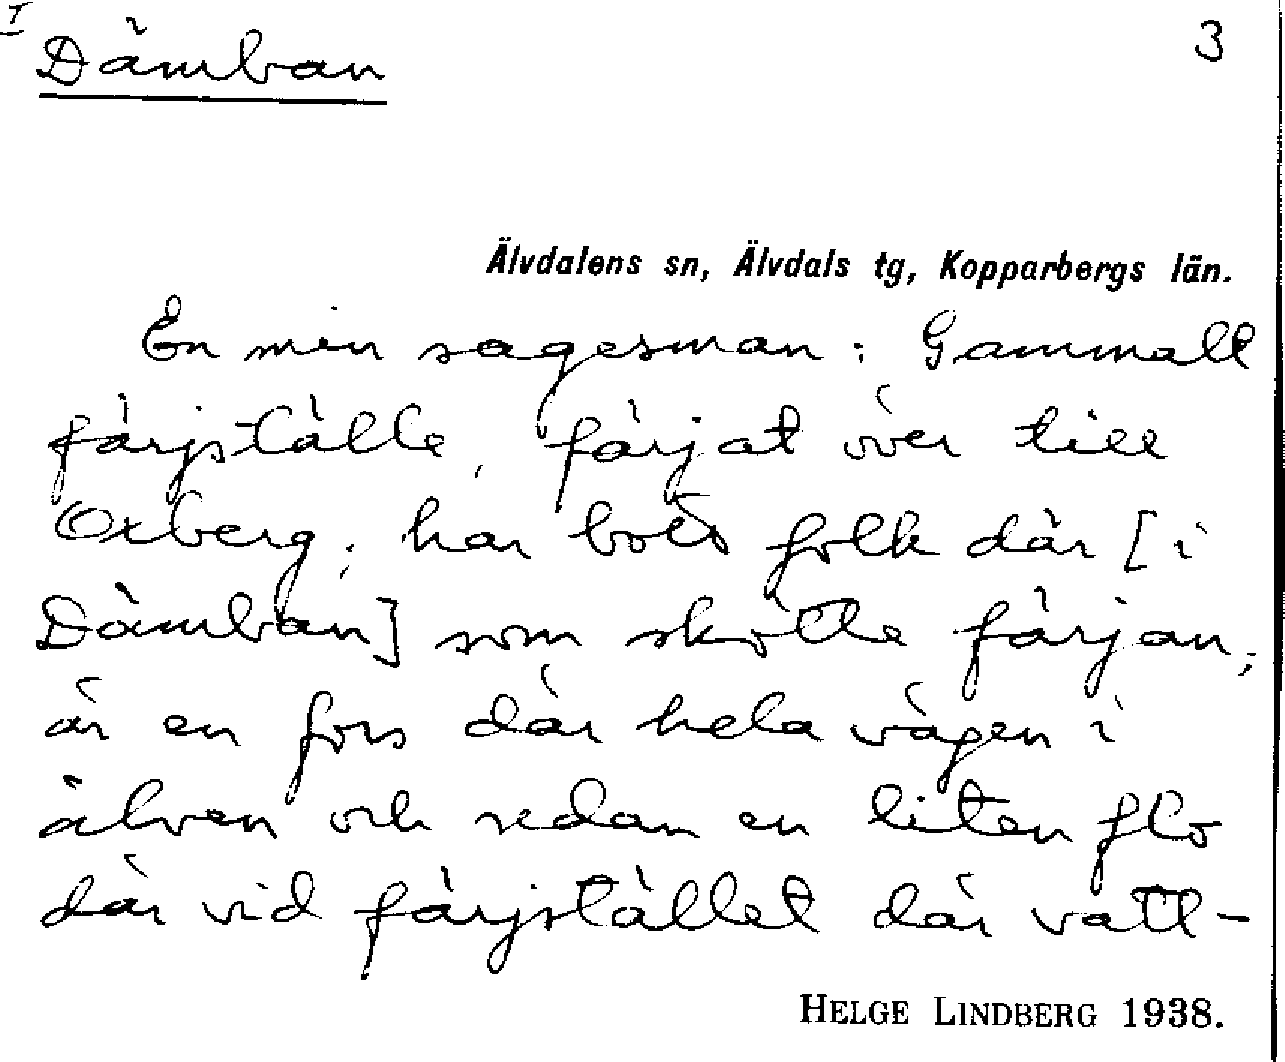 I
Dämban
3
Älvdalens sn, Älvdals tg, Kopparbergs län.
En min sagesman: Gammalt
färjställe, färjat över till
Oxberg; har bott folk där [i
Dämban] som skötte färjan;
är en fors där hela vägen i
älven och sedan en liten flo
där vid färjstället där vatt-
HELGE LINDBERG 1938.